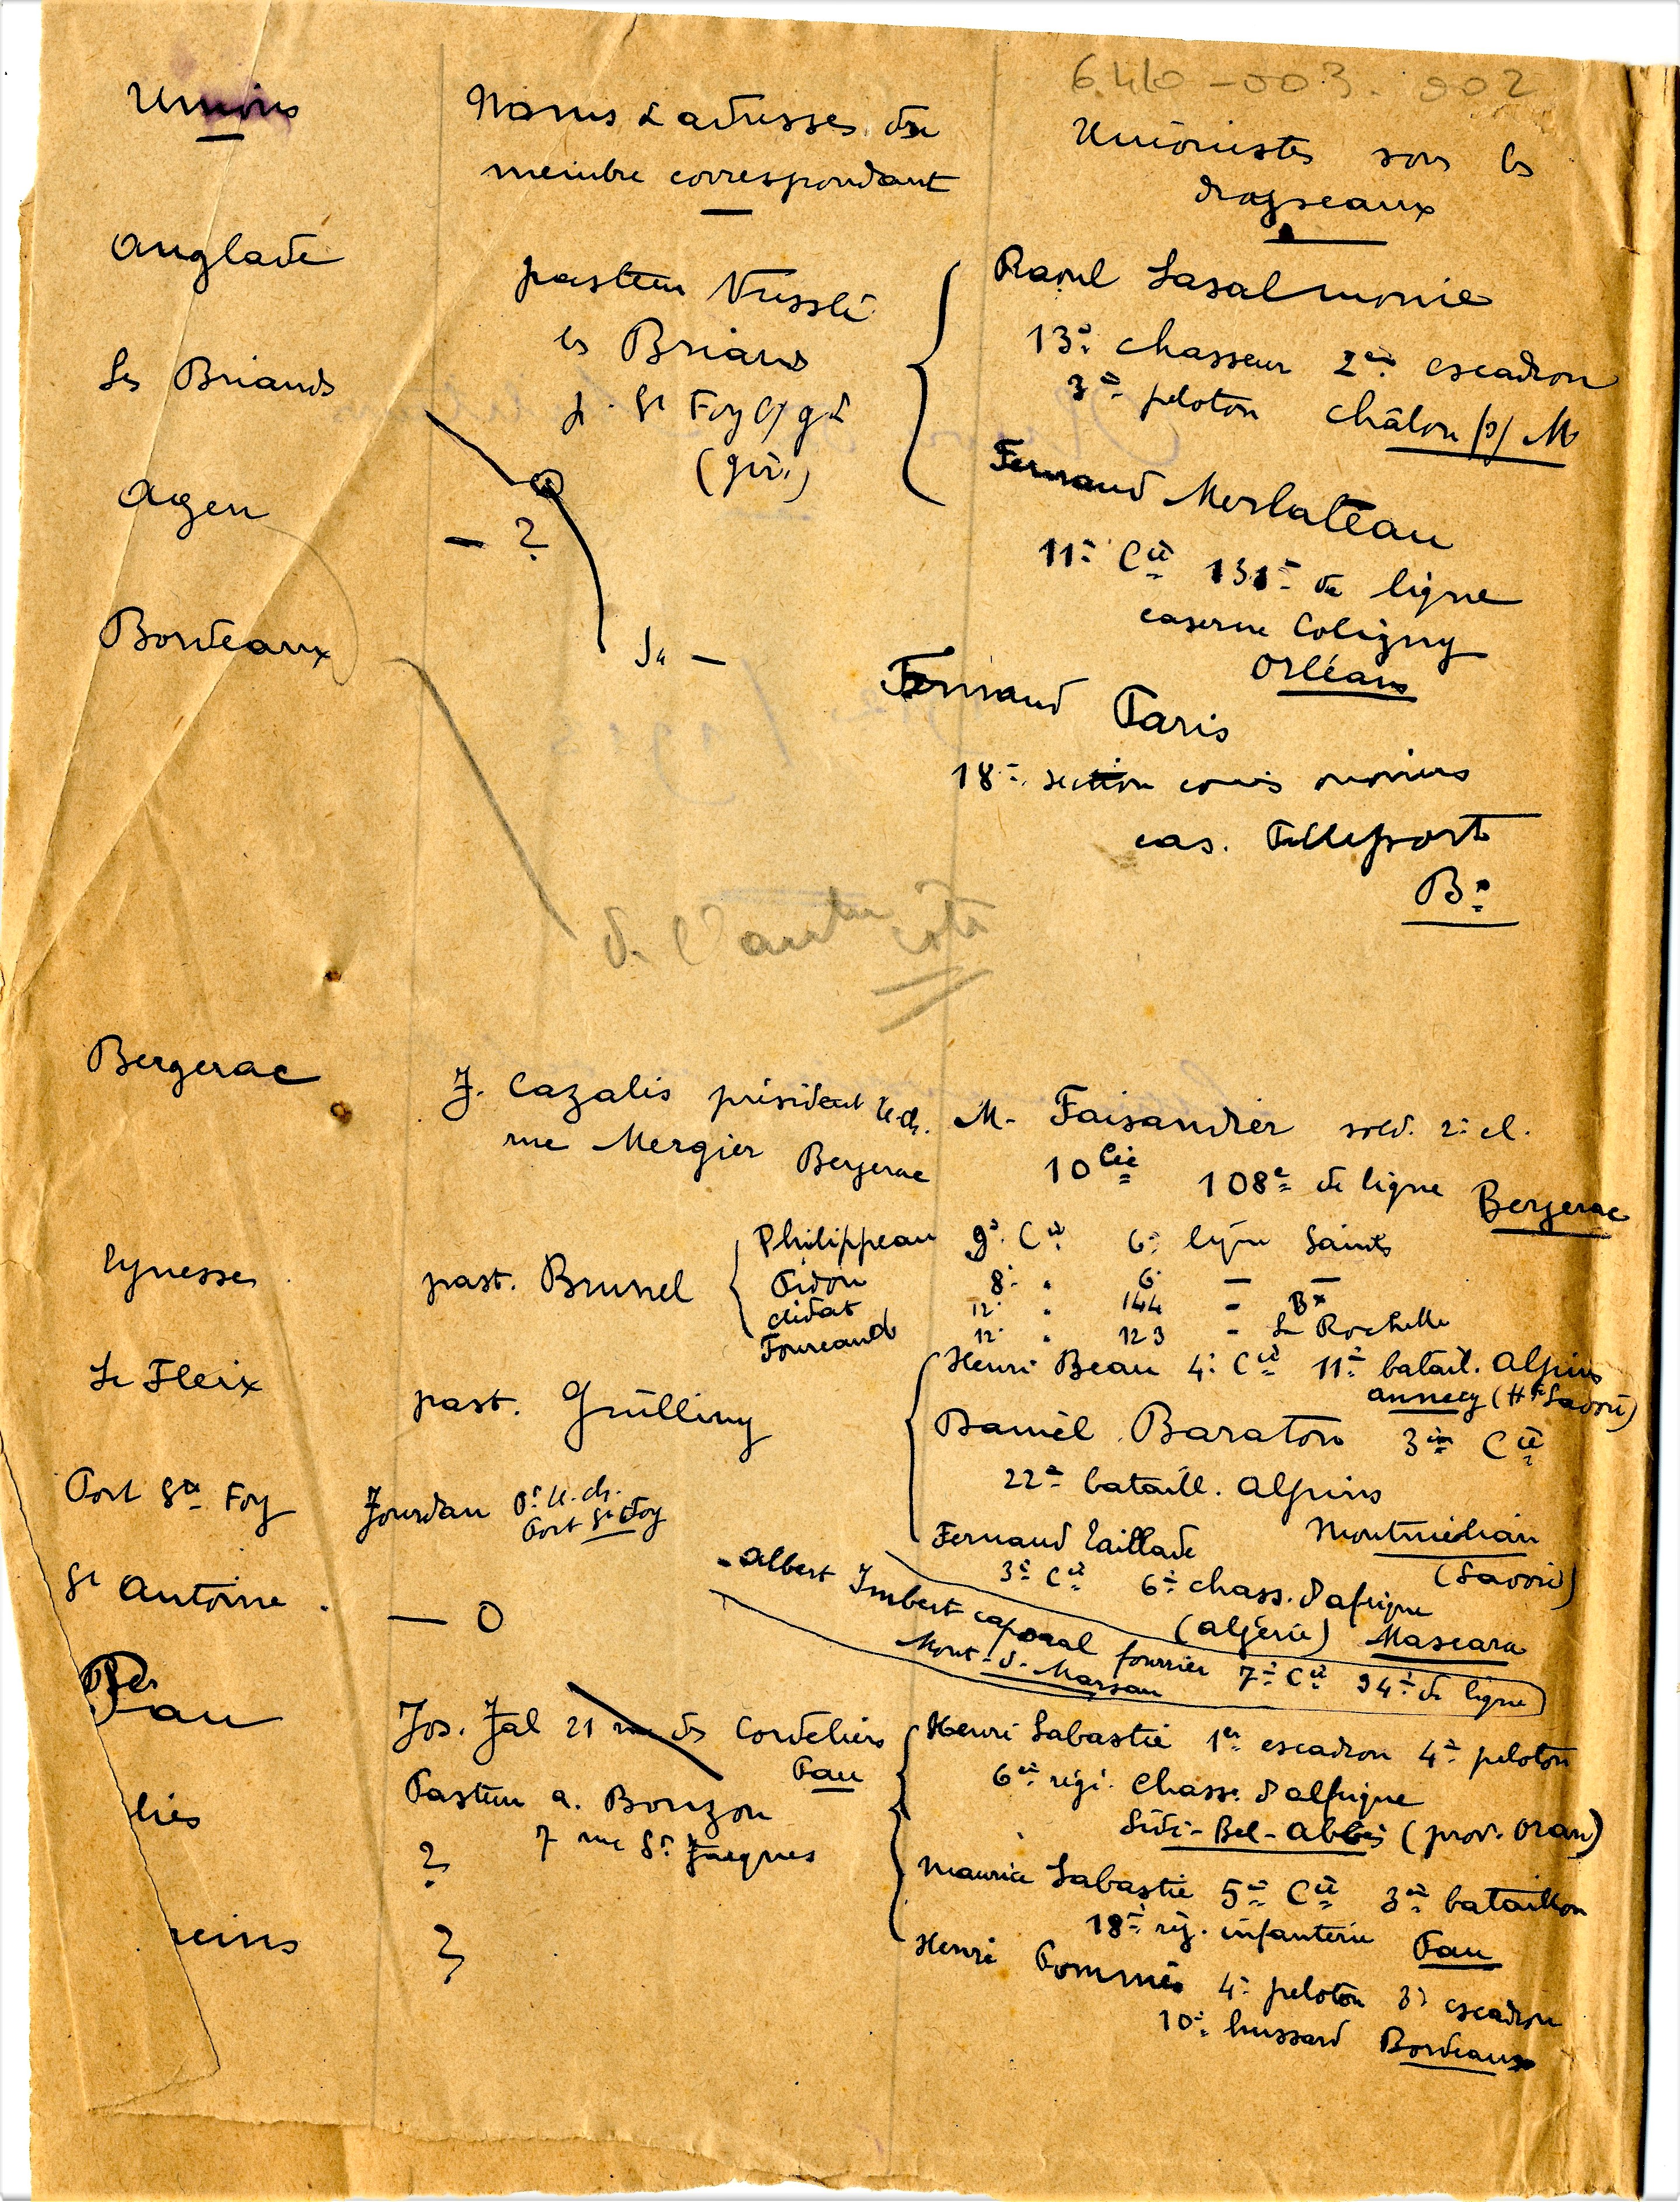 6.440-003.002
Unions
Noms & adresses du
membre correspondant
Unionistes sous les
drapeaux
Anglade
pasteur Nusslé
les Briands
p. St Foy s/ gde
(gir.)
Raoul Lasalmonie
13e chasseur 2e escadron
3e peloton Châlon s/ M
Les Briands
Fernand Merlateau
11e Cie 131e de ligne
caserne Coligny
Orléans
Agen
— ?
Bordeaux
Fernand Paris
18e section commis ouvriers
cas.
Bx
de l'autre côté
Bergerac
J. Cazalis président U.ch.
rue Mergier Bergerac
M. Faisandier sold. 2e cl.
10 Cie 108e de ligne Bergerac
Eynesse
past. Brunel
Philippeau 9e Cie 6e ligne Saintes
Pidon 8e " 6e — —
Clidat 12e " 144 - Bx
Foureaud 12e " 123 - La Rochelle
Le Fleix
past. Grülling
Henri Beau 4e Cie 11e batail. Alpins
Annecy (Hte Savoie)
Daniel Baraton 3e Cie
22e bataill. Alpins
Montmélian
(Savoie)
Fernand Taillade
3e Cie 6e chass. d'afrique
(algérie) Mascara
Port Ste Foy
Jourdan Pt U.ch.
Port Ste Foy
St Antoine
— 0
- Albert Imbert caporal fourrier 7e Cie 34e de ligne
Mont-de-Marsan
Pau
Jos. Jal 21 rue des Cordeliers
Pau
Pasteur A. Bonzon
7 rue St Jacques
Henri Labastie 1er escadron 4e peloton
6e régi. Chass. d'afrique
Sidi-Bel-Abbès (prov. Oran)
Maurice Labastie 5e Cie 3e bataillon
18e rég. infanterie Pau
Henri Pommès 4e peloton 3e escadron
10e hussard Bordeaux
liès
?
reins
?